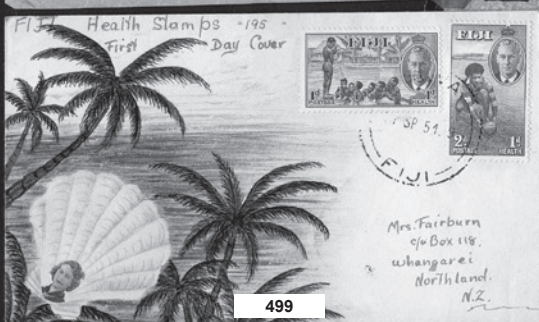 FIJI Health Stamps "195"
First Day Cover
FIJI
1d 1d
POSTAGE HEALTH
FIJI
2d 1d
POSTAGE HEALTH
SP 51
FIJI
Mrs. Fairburn
c/o Box 118.
Whangarei
Northland.
N.Z.
499